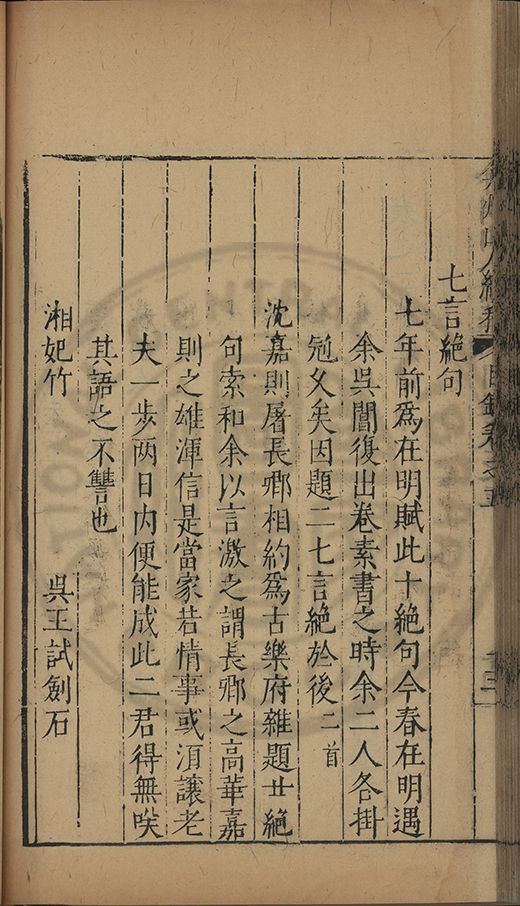 弇州山人續稿 目錄卷之五 十二
七言絕句
七年前爲在明賦此十絕句今春在明遇
余吳閶復出卷素書之時余二人各掛
冠久矣因題二七言絕於後二首
沈嘉則屠長卿相約爲古樂府雜題廿絕
句索和余以言激之謂長卿之高華嘉
則之雄渾信是當家若情事或湏讓老
夫一步兩日內便能成此二君得無唉
其語之不讐也
湘妃竹 吳王試劍石